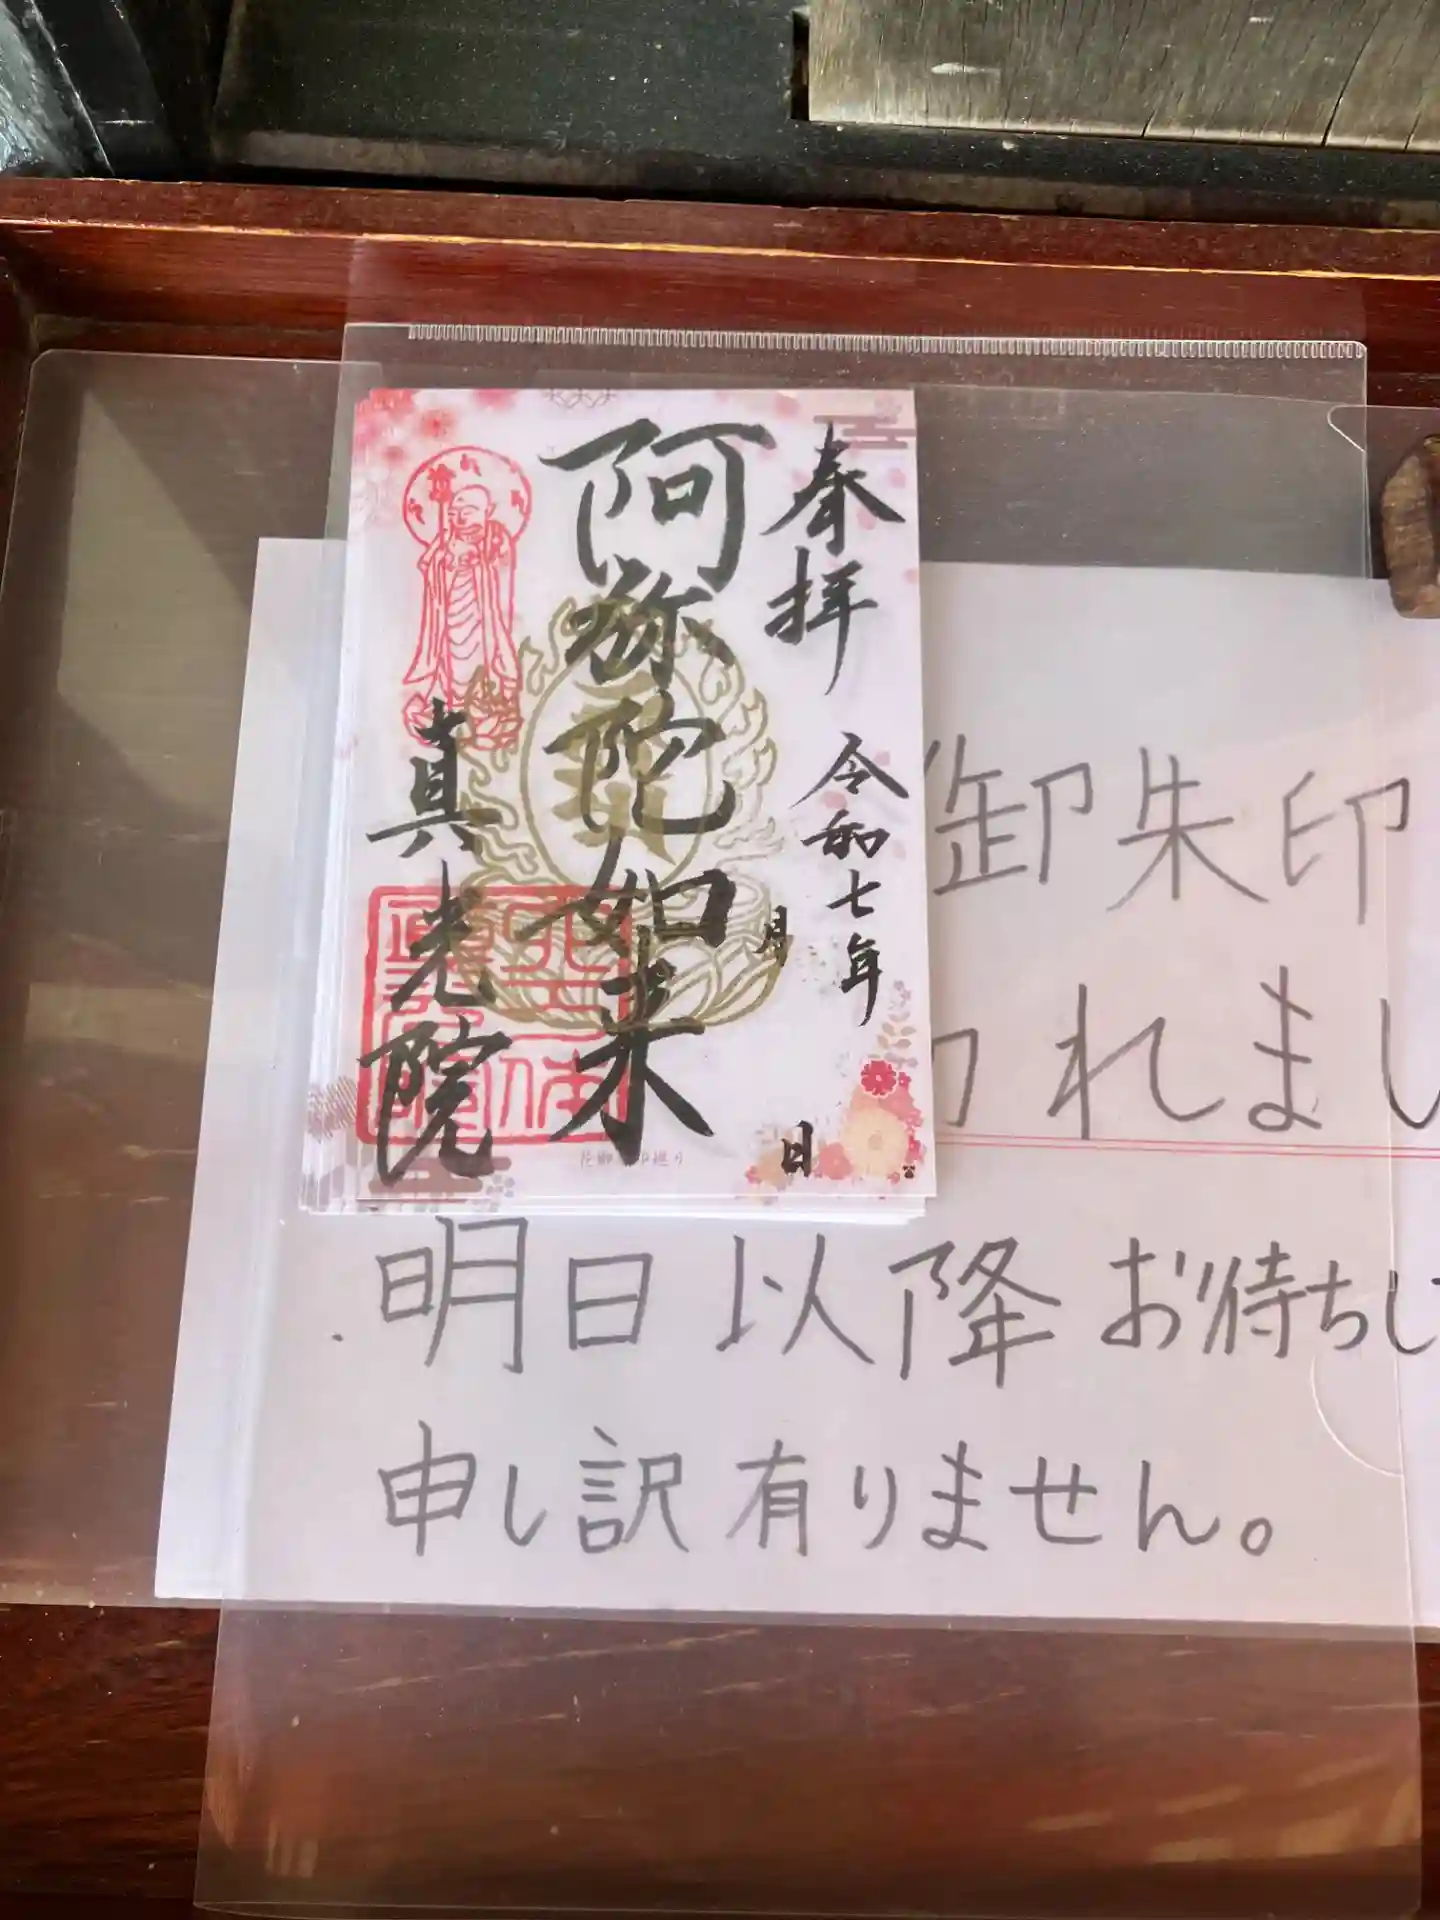 奉拝
令和七年
月
日
阿弥陀如来
真光院
御朱印
れまし
明日以降お待ちし
申し訳有りません。